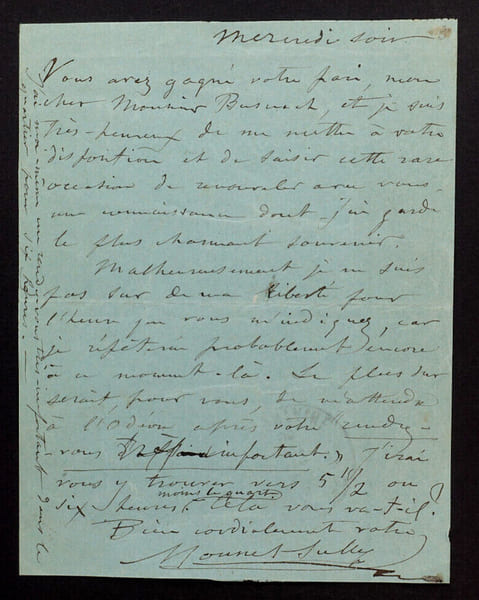 Mercredi soir
Vous avez gagné votre pari, mon
cher Monsieur Busnach, et je suis
très-heureux de me mettre à votre
disposition et de saisir cette rare
occasion de renouveler avec vous
une connaissance dont j'ai gardé
le plus charmant souvenir.
Malheureusement je ne suis
pas sûr de ma liberté pour
l'heure que vous m'indiquez, car
je répéterai probablement encore
à ce moment-là. Le plus sûr
serait, pour vous, de m'attendre
à l'Odéon après votre "rendez-
-vous important." J'irai
vous y trouver vers 5 h 1/2 ou
six heures moins le quart. Cela vous va-t-il?
Bien cordialement votre
Mounet-Sully
J'ai moi-même un rendez-vous très-important dans le
quartier pour six heures. —